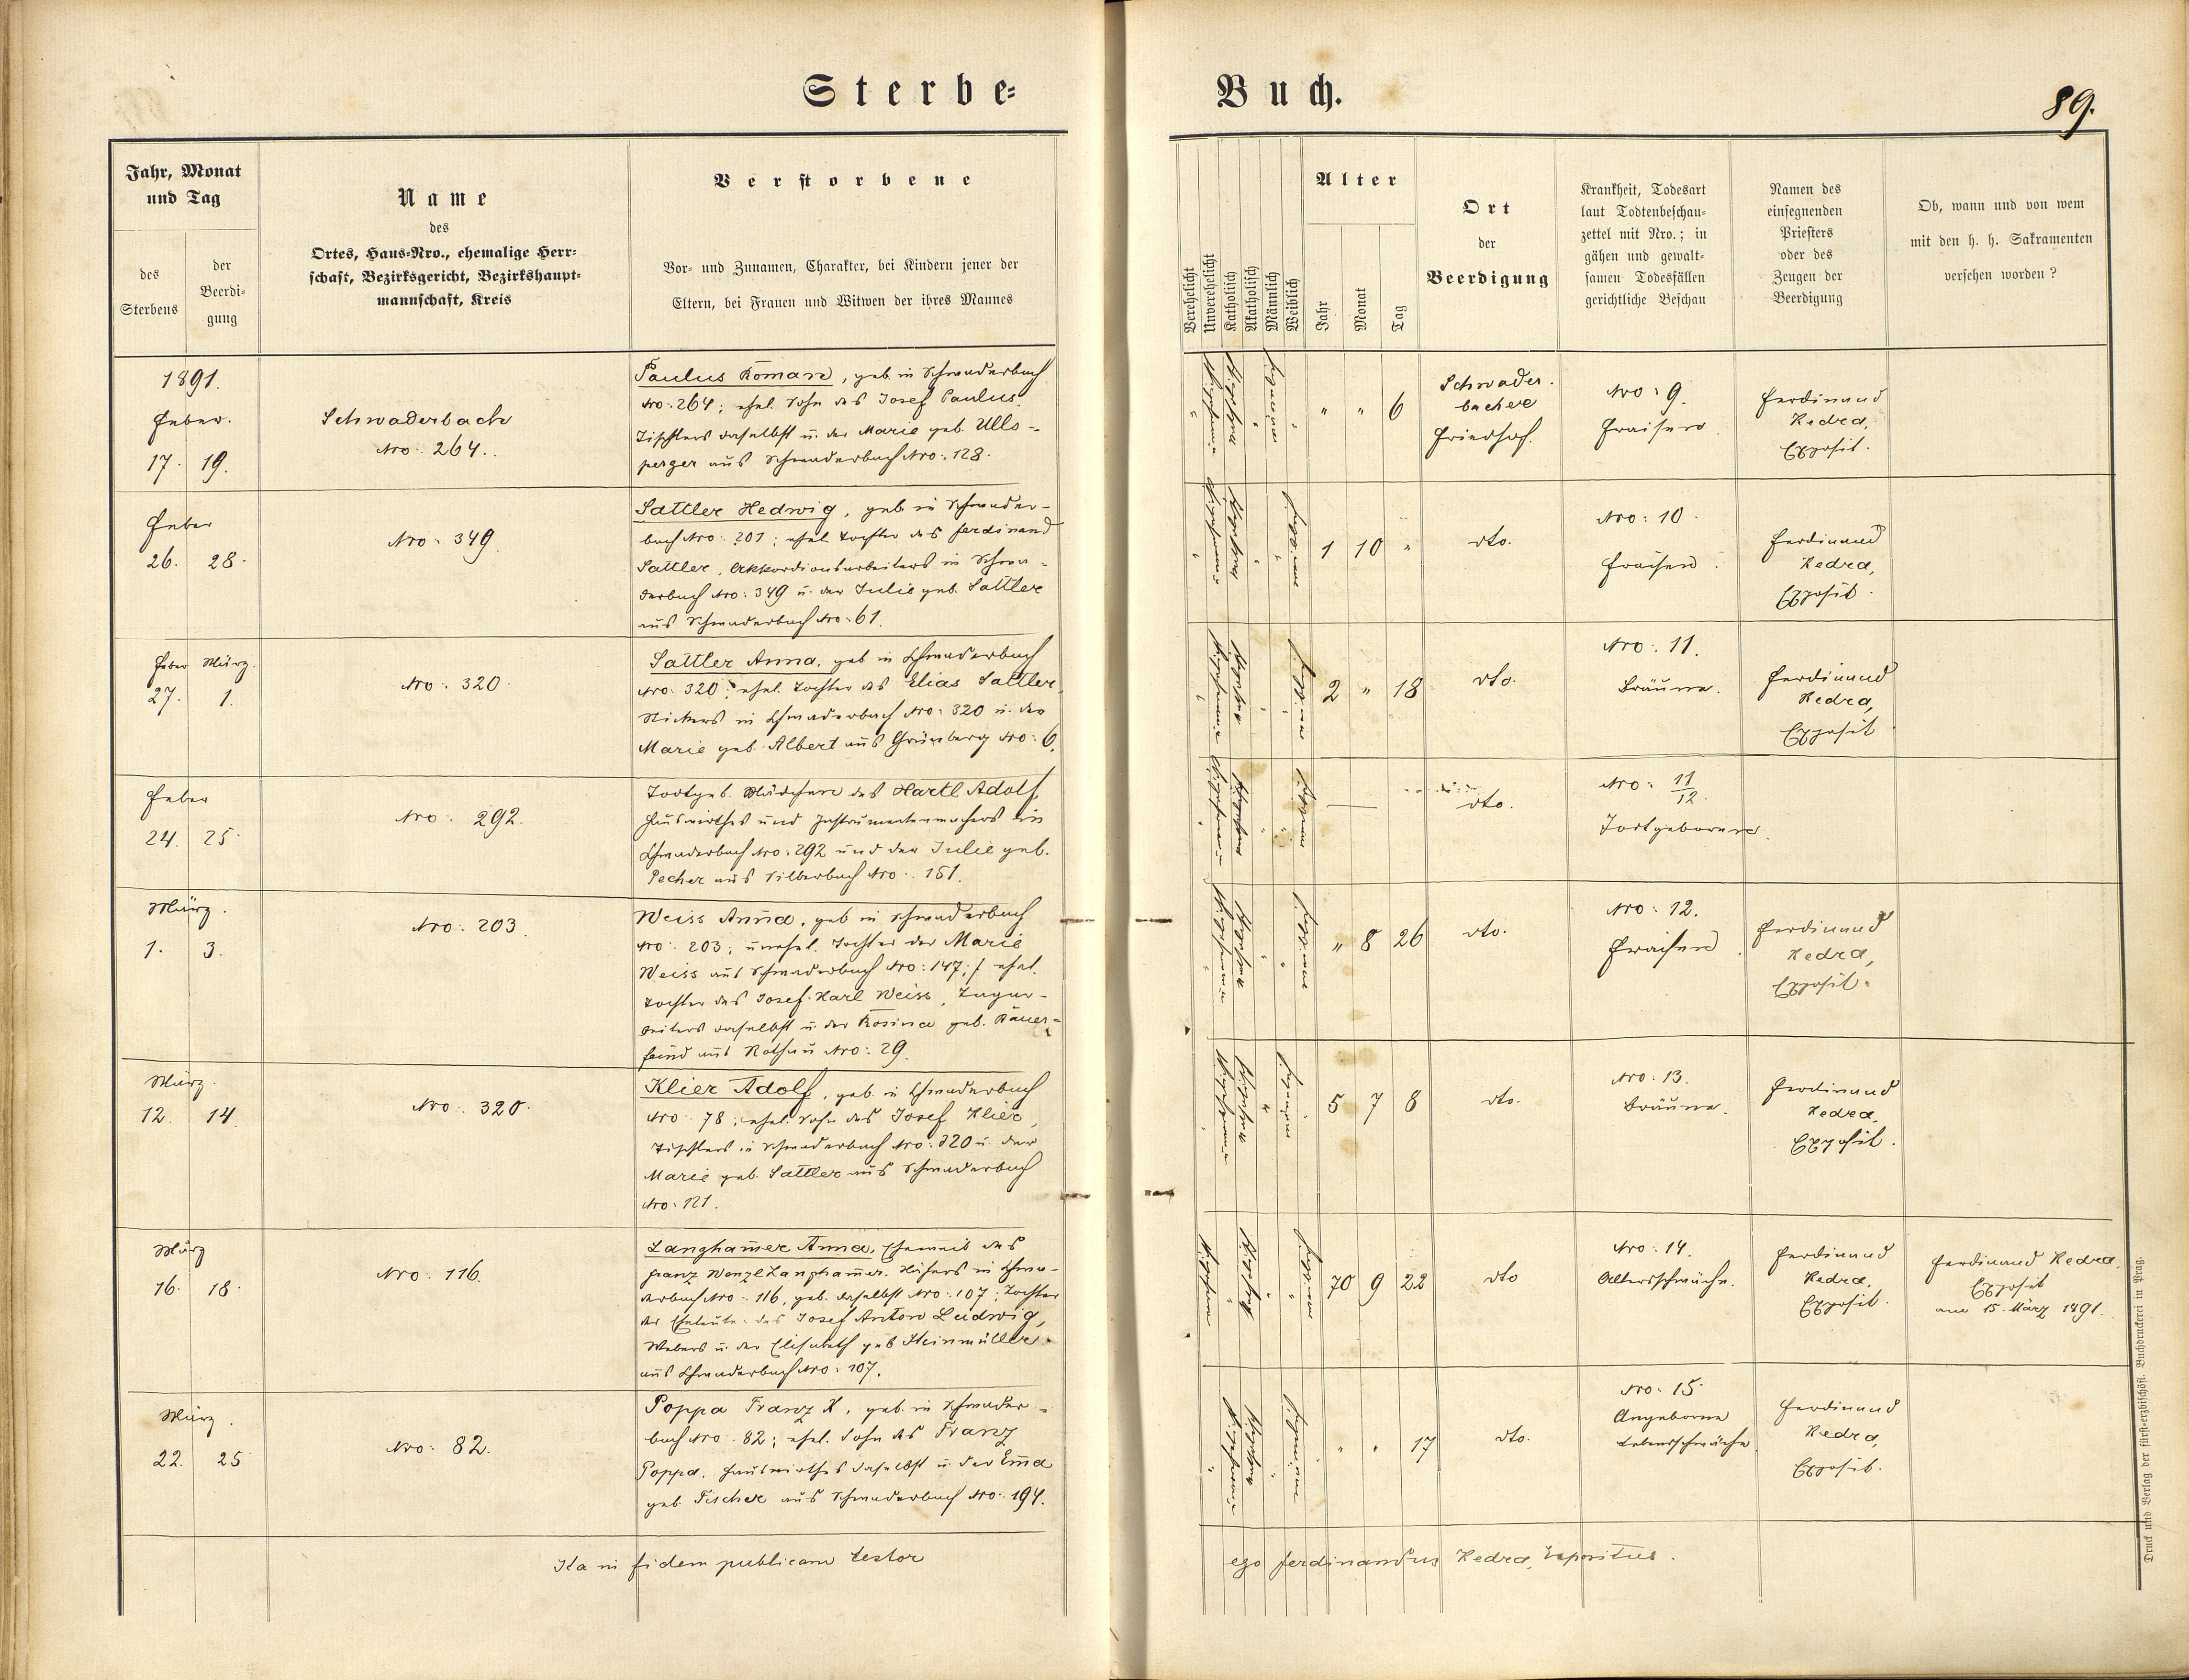 Sterbe-
Buch.
89.
Jahr, Monat
und Tag
des
Sterbens
der
Beerdi-
gung
Name
des
Ortes, Haus-Nro., ehemalige Herr-
schaft, Bezirksgericht, Bezirkshaupt-
mannschaft, Kreis
Verstorbene
Vor- und Zunamen, Charakter, bei Kindern jener der
Eltern, bei Frauen und Witwen der ihres Mannes
Verehelicht
Unverehelicht
Katholisch
Akatholisch
Männlich
Weiblich
Alter
Jahr
Monat
Tag
Ort
der
Beerdigung
Krankheit, Todesart
laut Todtenbeschau-
zettel mit Nro.; in
gähen und gewalt-
samen Todesfällen
gerichtliche Beschau
Namen des
einsegnenden
Priesters
oder des
Zeugen der
Beerdigung
Ob, wann und von wem
mit den h. h. Sakramenten
versehen worden?
1891.
Feber.
17. 19.
Schwaderbach
Nro: 264.
Paulus Roman, geb. in Schwaderbach
Nro: 264; ehel. Sohn des Josef Paulus,
Tischlers daselbst u. der Marie geb. Ulls-
perger aus Schwaderbach Nro: 128.
" " 6
Schwader-
bacher
Friedhof.
Nro: 9.
Fraisen
Ferdinand
Kedra,
Exposit.
Feber
26. 28.
Nro: 349
Sattler Hedwig, geb. in Schwader-
bach Nro: 201; ehel. Tochter des Ferdinand
Sattler, Akkordionarbeiters in Schwa-
derbach Nro: 349 u. der Julie geb. Sattler
aus Schwaderbach Nro: 61.
1 10 "
dto.
Nro: 10.
Fraisen.
Ferdinand
Kedra,
Exposit.
Feber März.
27. 1.
Nro: 320.
Sattler Anna, geb. in Schwaderbach
Nro: 320; ehel. Tochter des Elias Sattler,
Stickers in Schwaderbach Nro: 320 u. der
Marie geb. Albert aus Grünberg Nro: 6.
2 " 18
dto.
Nro: 11.
Bräune.
Ferdinand
Kedra,
Exposit
Feber
24. 25.
Nro: 292.
Todtgeb. Mädchen des Hartl Adolf,
Hauswirthes und Instrumentenmachers in
Schwaderbach Nro: 292 und der Julie geb.
Pecher aus Silberbach Nro: 151.
—
dto.
Nro: 11/12.
Todtgeboren.
März.
1. 3.
Nro: 203
Weiss Anna, geb. in Schwaderbach
Nro: 203; unehel. Tochter der Marie
Weiss aus Schwaderbach Nro: 147; / ehel.
Tochter des Josef Karl Weiss,
daselbst u. der Rosina geb. Bauer-
feind aus Rothau Nro: 29.
" 8 26
dto.
Nro: 12.
Fraisen.
Ferdinand
Kedra,
Exposit.
März.
12. 14.
Nro: 320.
Klier Adolf, geb. in Schwaderbach
Nro: 78; ehel. Sohn des Josef Klier,
Tischlers in Schwaderbach Nro: 320 u. der
Marie geb. Sattler aus Schwaderbach
Nro: 121.
5 7 8
dto.
Nro: 13.
Bräune.
Ferdinand
Kedra,
Exposit.
März
16. 18.
Nro: 116.
Langhammer Anna, Eheweib des
Franz Wenzl Langhammer, in Schwa-
derbach Nro: 116, geb. daselbst Nro: 107; Tochter
der Eheleute: des Josef Anton Ludwig,
Webers u. der Elisabeth geb. Steinmüller
aus Schwaderbach Nro: 107.
70 9 22
dto
Nro: 14.
Altersschwäche.
Ferdinand
Kedra,
Exposit.
Ferdinand Kedra,
Exposit
am 15. März 1891.
März.
22. 25
Nro: 82.
Poppa Franz X., geb. in Schwader-
bach Nro: 82; ehel. Sohn des Franz
Poppa, Hauswirthes daselbst u. der Emma
geb. Fischer aus Schwaderbach Nro: 194.
" " 17
dto.
Nro: 15.
Angeborne
Lebensschwäche.
Ferdinand
Kedra,
Exposit.
Ita in fidem publicam testor
ego Ferdinandus Kedra, Expositus.
Druck und Verlag der fürst-erzbischöfl. Buchdruckerei in Prag.